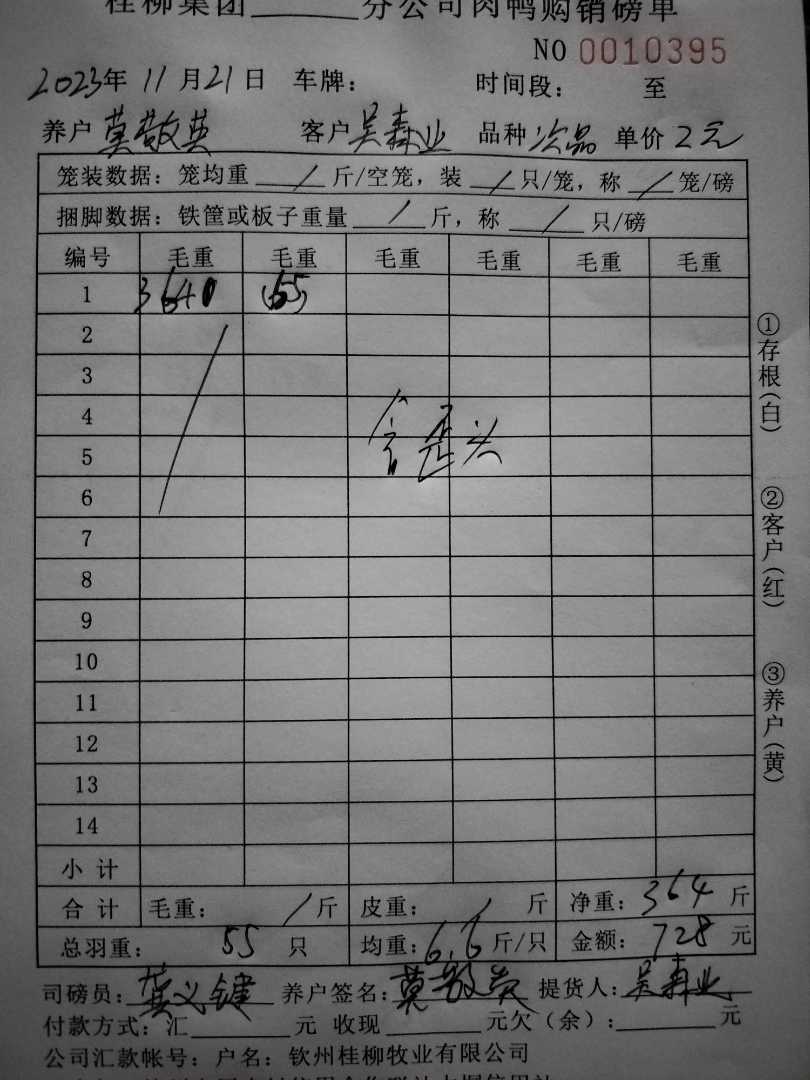 桂柳集团______分公司肉鸭购销磅单
NO 0010395
2023年 11月21日 车牌: 时间段: 至
养户 莫敬英 客户 吴森业 品种 次品 单价 2元
笼装数据: 笼均重 / 斤/空笼, 装 / 只/笼, 称 / 笼/磅
捆脚数据: 铁筐或板子重量 / 斤, 称 / 只/磅
编号 毛重 毛重 毛重 毛重 毛重 毛重
1 3640 (55)
2
3
4
含歪头
5
6
7
8
9
10
11
12
13
14
小计
合计 毛重: / 斤 皮重: / 斤 净重: 364 斤
总羽重: 55 只 均重: 6.6 斤/只 金额: 728 元
司磅员: 龚义键 养户签名: 莫敬英 提货人: 吴森业
付款方式: 汇______元 收现______元欠(余):______元
公司汇款帐号: 户名: 钦州桂柳牧业有限公司
①存根(白)
②客户(红)
③养户(黄)